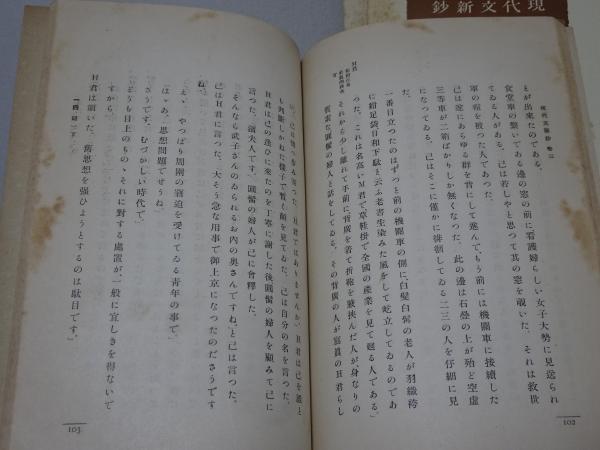 現代文新鈔
現代文新鈔 卷三
とが出來たのである。
食堂車の繫いである邊の窓の前に看護婦らしい女子大勢に見送られ
てゐる人がある。己は若しやと思つて其の窓を覗いた。それは救世
軍の帽を被つた人であつた。
己は遂にあらゆる群を背にして進んで、もう前には機關車に接續した
三等車が二箱ばかりしか無くなつた。此の邊は石疊の上が殆ど空虛
になつてゐる。己はそこに僅かに徘徊してゐる二三の人を仔細に見
た。
一番目立つたのはずつと前の機關車の側に、白髮白髯の老人が羽織袴
に紺足袋日和下駄と云ふ老書生染みた風をして屹立してゐるのであ
つた。これは名高いM君で草鞋掛で全國の產業を見て廻る人である。
それから少し離れて手前に背廣を着て折鞄を腋挾んだ人が、身なりの
質素な圓髷の婦人と話をしてゐる。その背廣の人が寫眞のH君らし
H君
102
い。己は傍へ歩み寄つた。「H君ではありませんか。」H君は己を誰と
も判斷しかねた樣子で暫も顏を見てゐた。己は自分の名を言つた。
H君は己の逢ひに來たのを丁寧に謝した後、圓髷の婦人を顧みて己に
言つた。「須夫人です。」圓髷の婦人が己に會釋した。
「そんなら武子さんのゐられるお內の奧さんですね」と己は言つた。
己はH君に言つた。「大そう急な用事で御上京になつたのださうです
ね。」
「えゝ、やつぱり周圍の窘迫を受けてゐる青年の事で。」
「はゝあ。思想問題でせうね。」
「さうです。むづかしい時代で。」
「どうも目上のものゝそれに對する處置が、一般に宜しきを得ないで
すから。」
H君は頷いた。「舊思想を強ひようとするのは駄目です。」
103